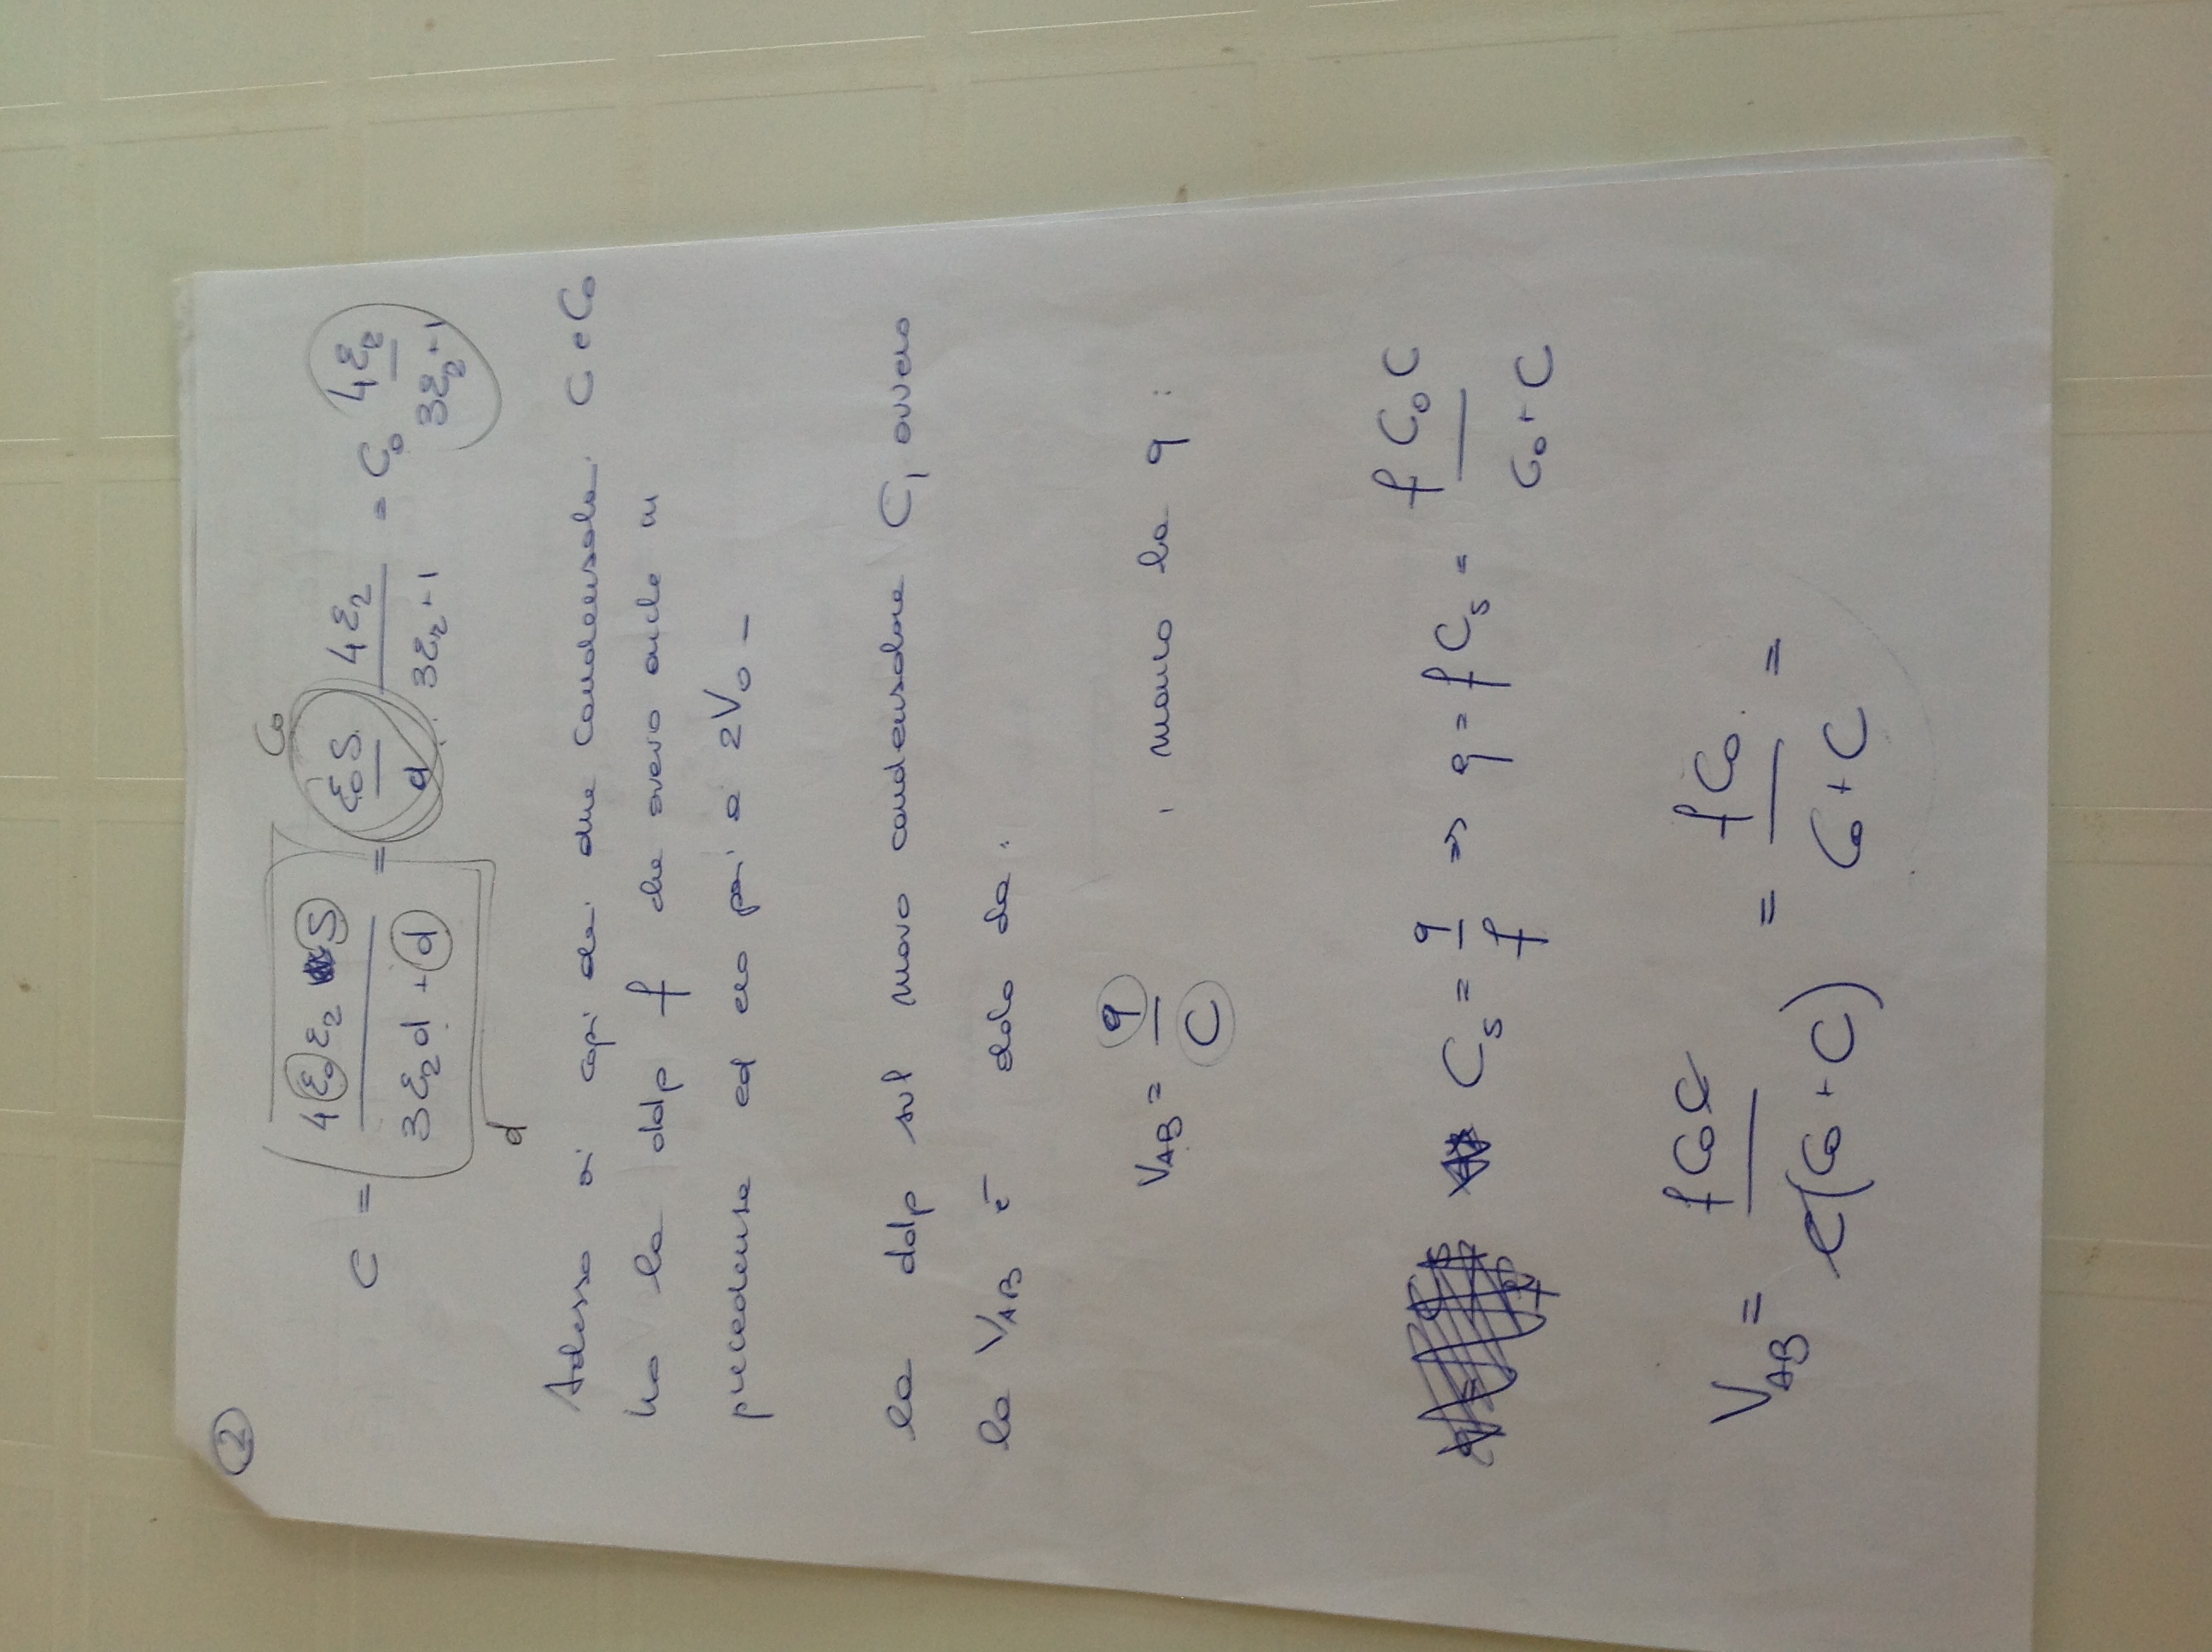 2
C = 4 ε₀ ε₂ S / 3 ε₂ d + d = ε₀ S / d 4 ε₂ / 3 ε₂ + 1 = C₀ 4 ε₂ / 3 ε₂ + 1
C₀
d
Adesso ai capi dei due condensatori C e C₀
ho la ddp f che avevo anche in
precedenza ed era pari a 2V₀ -
la ddp sul nuovo condensatore C, ovvero
la V_AB è data da:
V_AB = q / C , manca la q :
C_s = q / f => q = f C_s = f C₀ C / C₀ + C
V_AB = f C₀ C / C (C₀ + C) = f C₀ / C₀ + C =